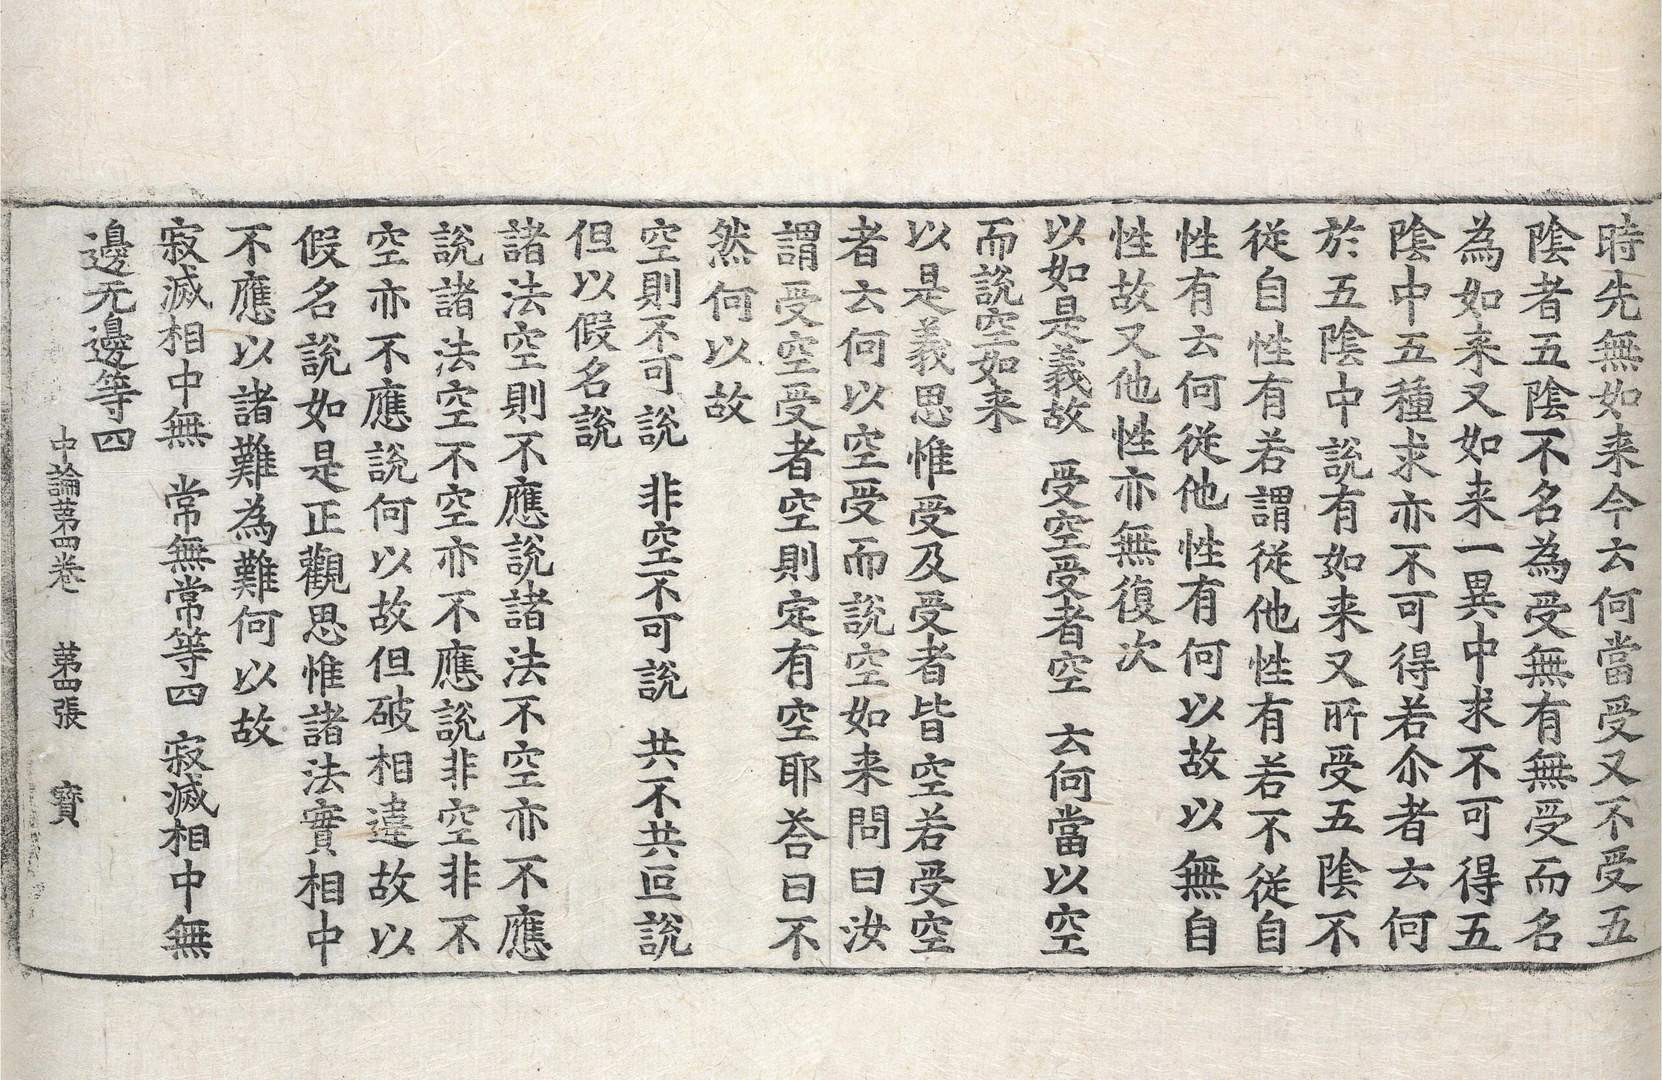 時先無如来今云何當受又不受五
陰者五陰不名為受無有無受而名
為如来又如来一異中求不可得五
陰中五種求亦不可得若尒者云何
於五陰中說有如来又所受五陰不
從自性有若謂從他性有若不從自
性有云何從他性有何以故以無自
性故又他性亦無復次
以如是義故　受空受者空　云何當以空
而說空如来
以是義思惟受及受者皆空若受空
者云何以空受而說空如来問曰汝
謂受空受者空則定有空耶荅曰不
然何以故
空則不可說　非空不可說　共不共叵說
但以假名說
諸法空則不應說諸法不空亦不應
說諸法空不空亦不應說非空非不
空亦不應說何以故但破相違故以
假名說如是正觀思惟諸法實相中
不應以諸難為難何以故
寂滅相中無　常無常等四　寂滅相中無
邊无邊等四
中論第四卷　第四張　寳